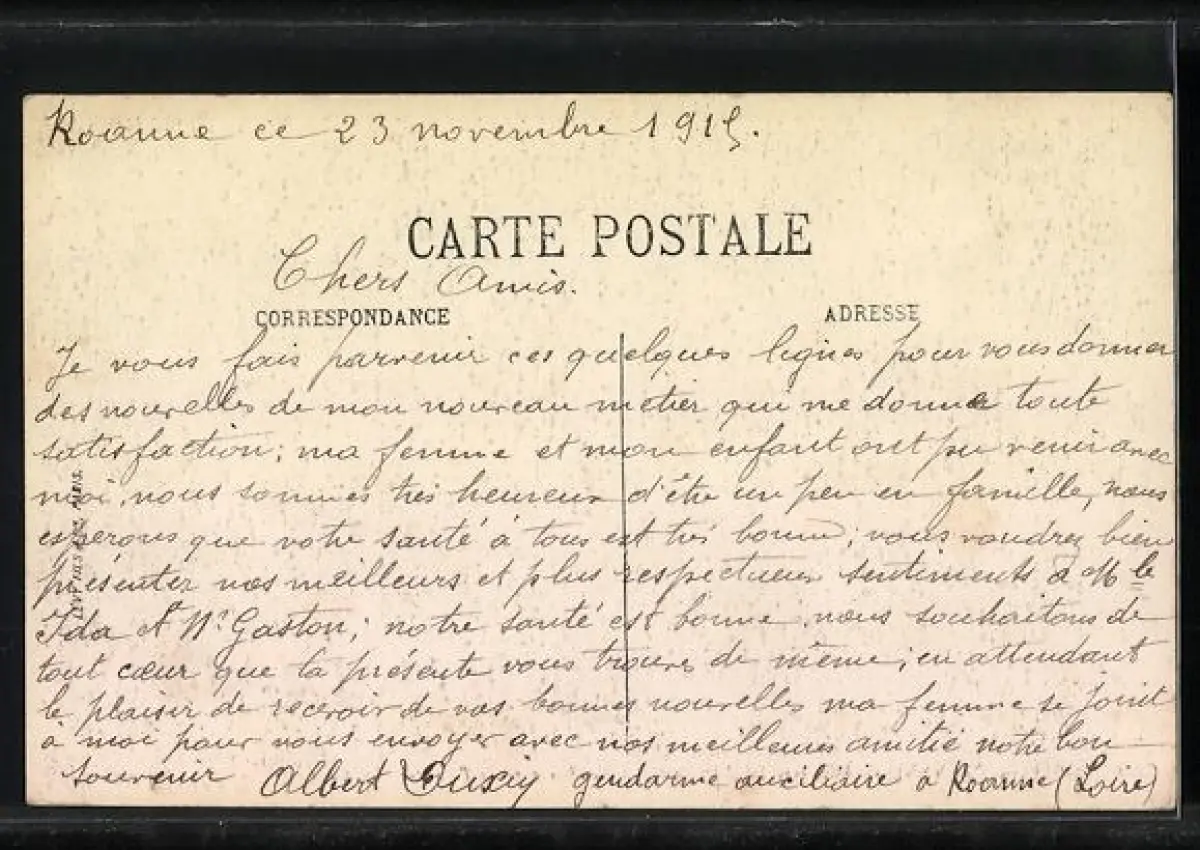 Roanne ce 23 novembre 1915.
CARTE POSTALE
Chers Amis.
CORRESPONDANCE
ADRESSE
Je vous fais parvenir ces quelques lignes pour vous donner
des nouvelles de mon nouveau métier qui me donne toute
satisfaction; ma femme et mon enfant ont pu venir avec
moi, nous sommes très heureux d'être un peu en famille, nous
esperons que votre santé à tous est très bonne; vous voudrez bien
présenter nos meilleurs et plus respectueux sentiments à Mlle
Ida et Mr Gaston; notre santé est bonne, nous souhaitons de
tout cœur que la présente vous trouve de même; en attendant
le plaisir de recevoir de vos bonnes nouvelles ma femme se joint
à moi pour vous envoyer avec nos meilleures amitié notre bon
souvenir Albert gendarme auxiliaire à Roanne (Loire)